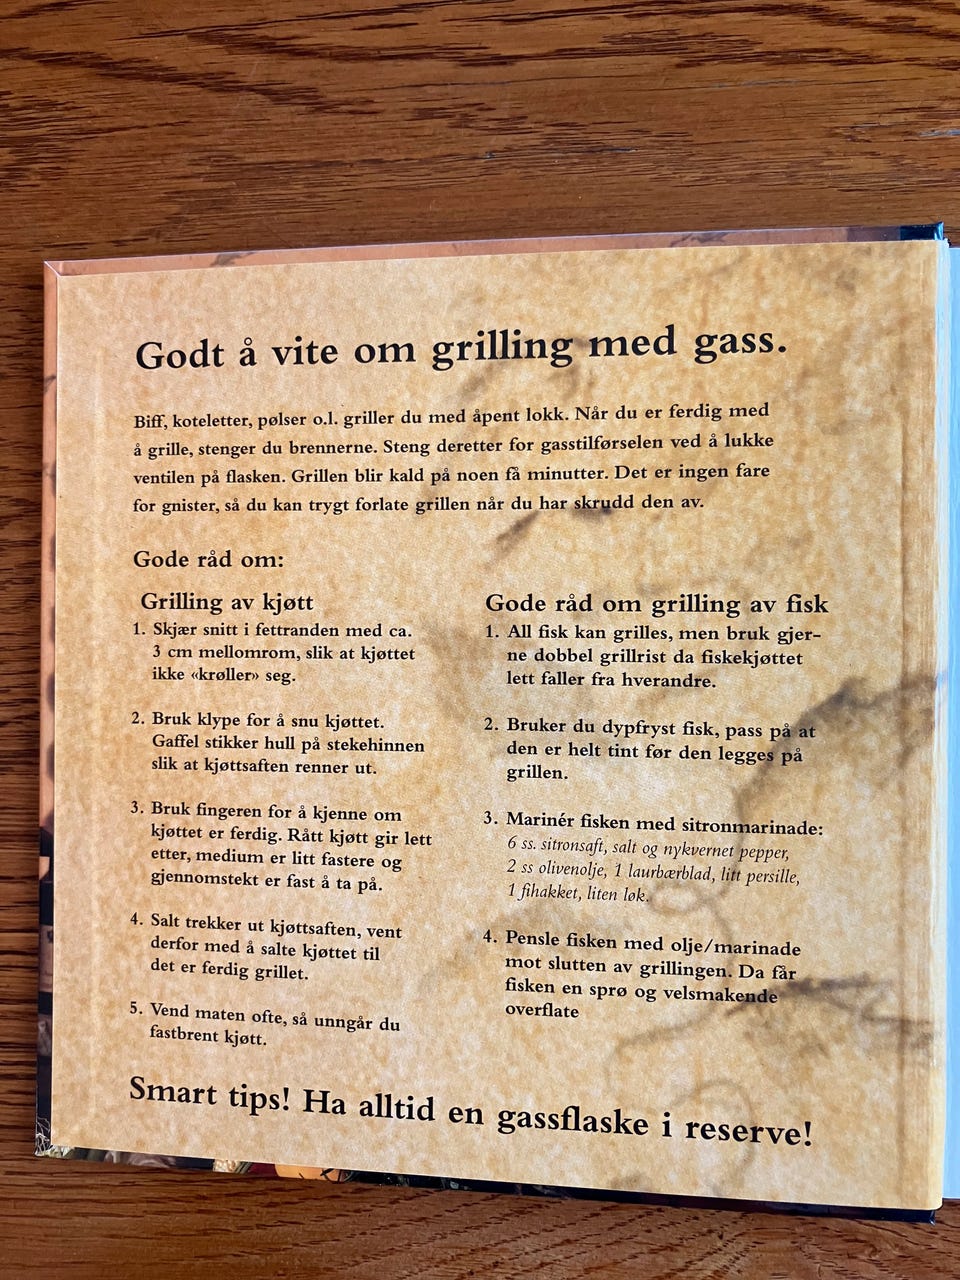 Godt å vite om grilling med gass.
Biff, koteletter, pølser o.l. griller du med åpent lokk. Når du er ferdig med
å grille, stenger du brennerne. Steng deretter for gasstilførselen ved å lukke
ventilen på flasken. Grillen blir kald på noen få minutter. Det er ingen fare
for gnister, så du kan trygt forlate grillen når du har skrudd den av.
Gode råd om:
Grilling av kjøtt
1. Skjær snitt i fettranden med ca.
3 cm mellomrom, slik at kjøttet
ikke «krøller» seg.
2. Bruk klype for å snu kjøttet.
Gaffel stikker hull på stekehinnen
slik at kjøttsaften renner ut.
3. Bruk fingeren for å kjenne om
kjøttet er ferdig. Rått kjøtt gir lett
etter, medium er litt fastere og
gjennomstekt er fast å ta på.
4. Salt trekker ut kjøttsaften, vent
derfor med å salte kjøttet til
det er ferdig grillet.
5. Vend maten ofte, så unngår du
fastbrent kjøtt.
Gode råd om grilling av fisk
1. All fisk kan grilles, men bruk gjer-
ne dobbel grillrist da fiskekjøttet
lett faller fra hverandre.
2. Bruker du dypfryst fisk, pass på at
den er helt tint før den legges på
grillen.
3. Marinér fisken med sitronmarinade:
6 ss. sitronsaft, salt og nykvernet pepper,
2 ss olivenolje, 1 laurbærblad, litt persille,
1 fihakket, liten løk.
4. Pensle fisken med olje/marinade
mot slutten av grillingen. Da får
fisken en sprø og velsmakende
overflate
Smart tips! Ha alltid en gassflaske i reserve!